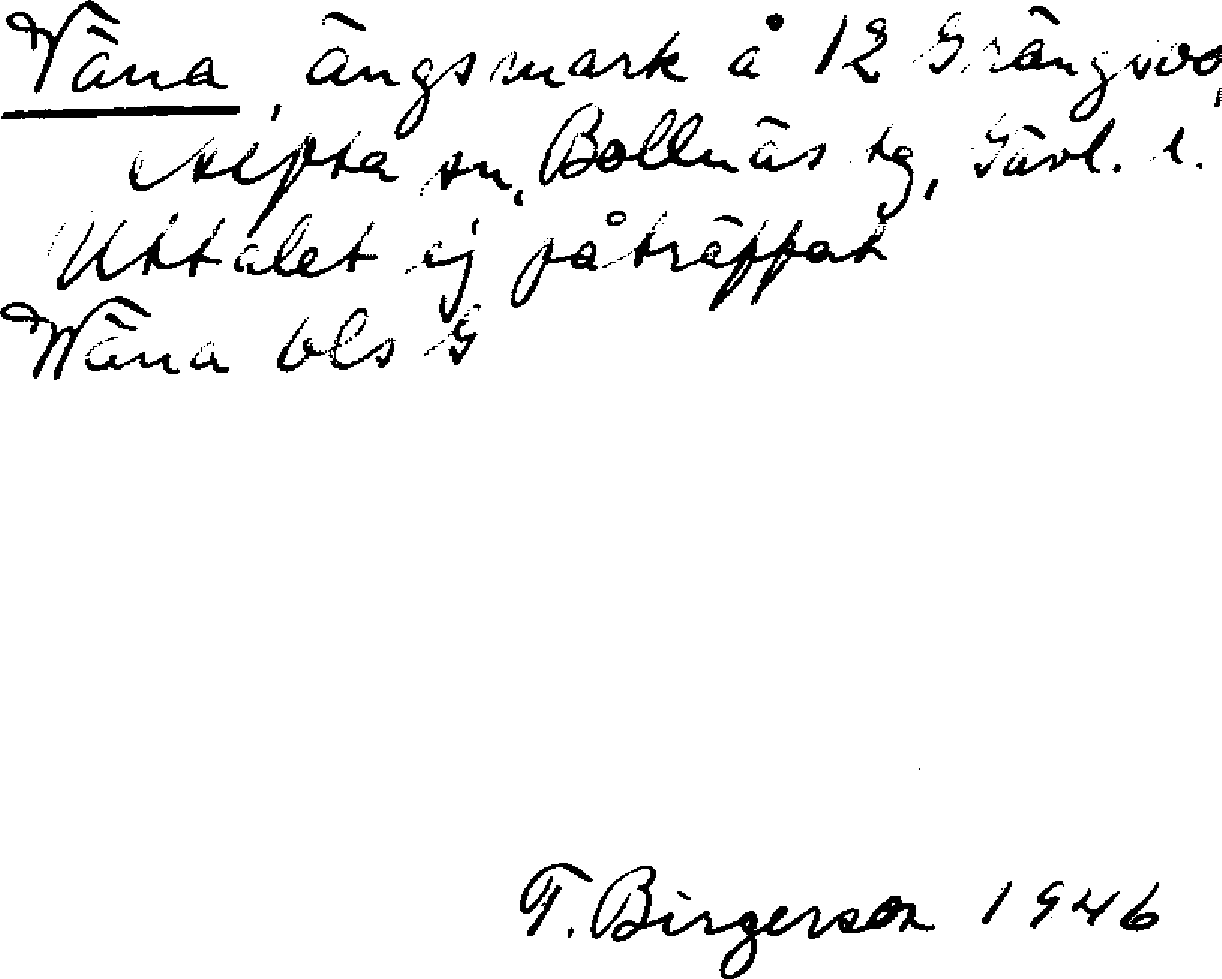 Väna, ängsmark å 12 Grängsbo,
Alfta sn, Bollnäs tg, Gävl. l.
Uttalet ej påträffat
Wäna bls G
T. Birgerson 1946